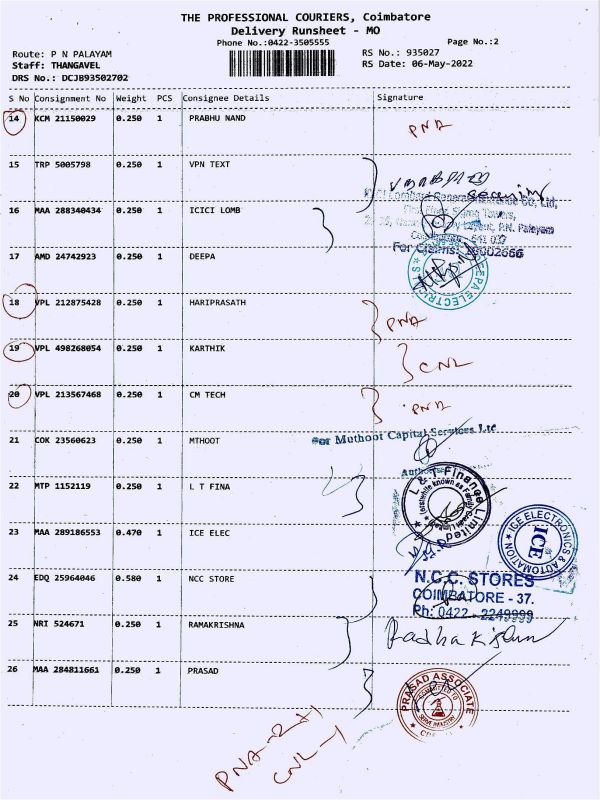 THE PROFESSIONAL COURIERS, Coimbatore
Delivery Runsheet - MO
Phone No.:0422-3505555
Page No.:2
Route: P N PALAYAM
Staff: THANGAVEL
DRS No.: DCJB93502702
RS No.: 935027
RS Date: 06-May-2022
S No Consignment No Weight PCS Consignee Details Signature
14 KCM 21150029 0.250 1 PRABHU NAND PNA
15 TRP 5005798 0.250 1 VPN TEXT
16 MAA 288340434 0.250 1 ICICI LOMB
P.N. Palayam
641 037
For Claims:
17 AMD 24742923 0.250 1 DEEPA
DEEPA ELECTRICALS
18 VPL 212875428 0.250 1 HARIPRASATH PNA
19 VPL 498268054 0.250 1 KARTHIK CNL
20 VPL 213567468 0.250 1 CM TECH PNA
21 COK 23560623 0.250 1 MTHOOT
For Muthoot Capital Services Ltd
22 MTP 1152119 0.250 1 L T FINA
L & T Finance Limited
23 MAA 289186553 0.470 1 ICE ELEC
ICE ELECTRONICS & AUTOMATION
ICE
24 EDQ 25964046 0.580 1 NCC STORE
N.C.C. STORES
COIMBATORE - 37.
Ph: 0422 - 2249999
25 NRI 524671 0.250 1 RAMAKRISHNA
Radha Krishnan
26 MAA 284811661 0.250 1 PRASAD
PRASAD ASSOCIATE
PNA
CNL - 1